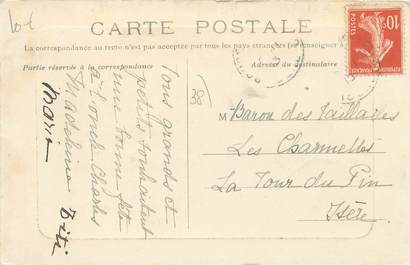 10.f
CARTE POSTALE
La correspondance au recto n'est pas acceptée par tous les pays étrangers (se renseigner à
Partie réservée à la correspondance
Adresse du destinataire
10
POSTES
Tous grands et
petits souhaitent
une bonne fête
à l'oncle Charles
Madeleine Titi
Marie
38
M Baron des Taillades
Les Charmelles
La Tour du Pin
Isère